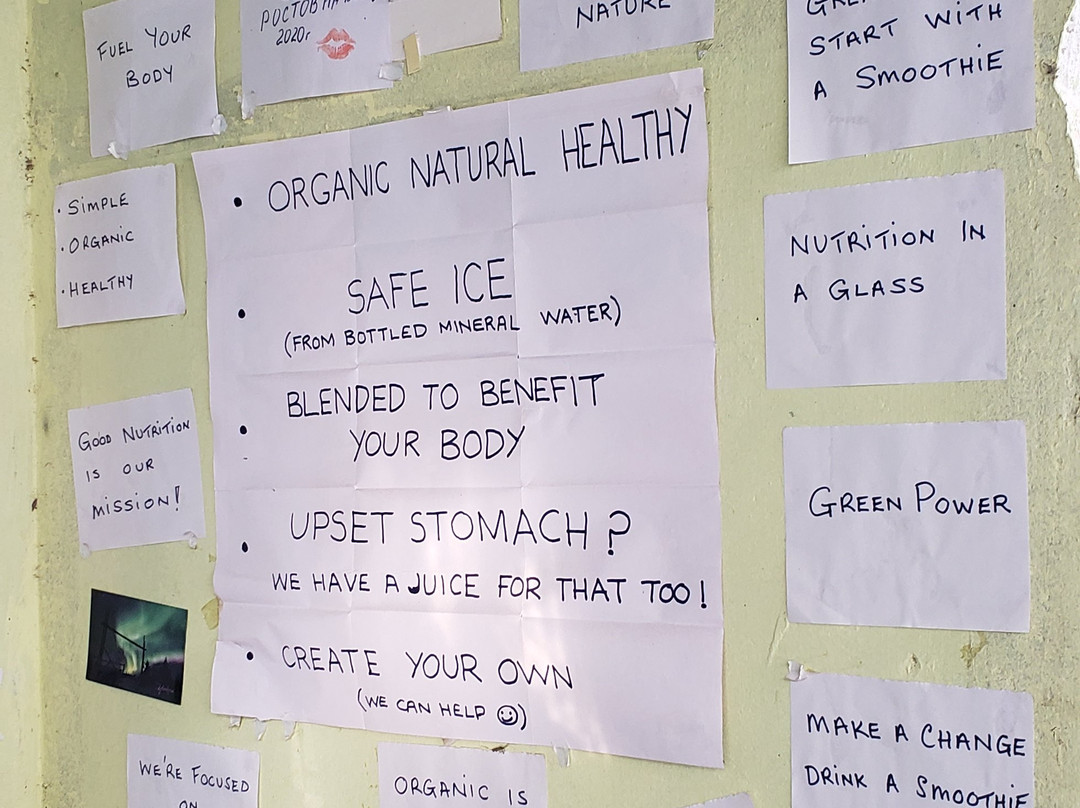 FUEL YOUR
BODY
2020г
START WITH
A SMOOTHIE
• SIMPLE
• ORGANIC
• HEALTHY
• ORGANIC NATURAL HEALTHY
• SAFE ICE
(FROM BOTTLED MINERAL WATER)
• BLENDED TO BENEFIT
YOUR BODY
• UPSET STOMACH?
WE HAVE A JUICE FOR THAT TOO!
• CREATE YOUR OWN
(WE CAN HELP ☺)
NATURE
NUTRITION IN
A GLASS
GOOD NUTRITION
IS OUR
MISSION!
GREEN POWER
MAKE A CHANGE
DRINK A SMOOTHIE
WE'RE FOCUSED
ON
ORGANIC IS